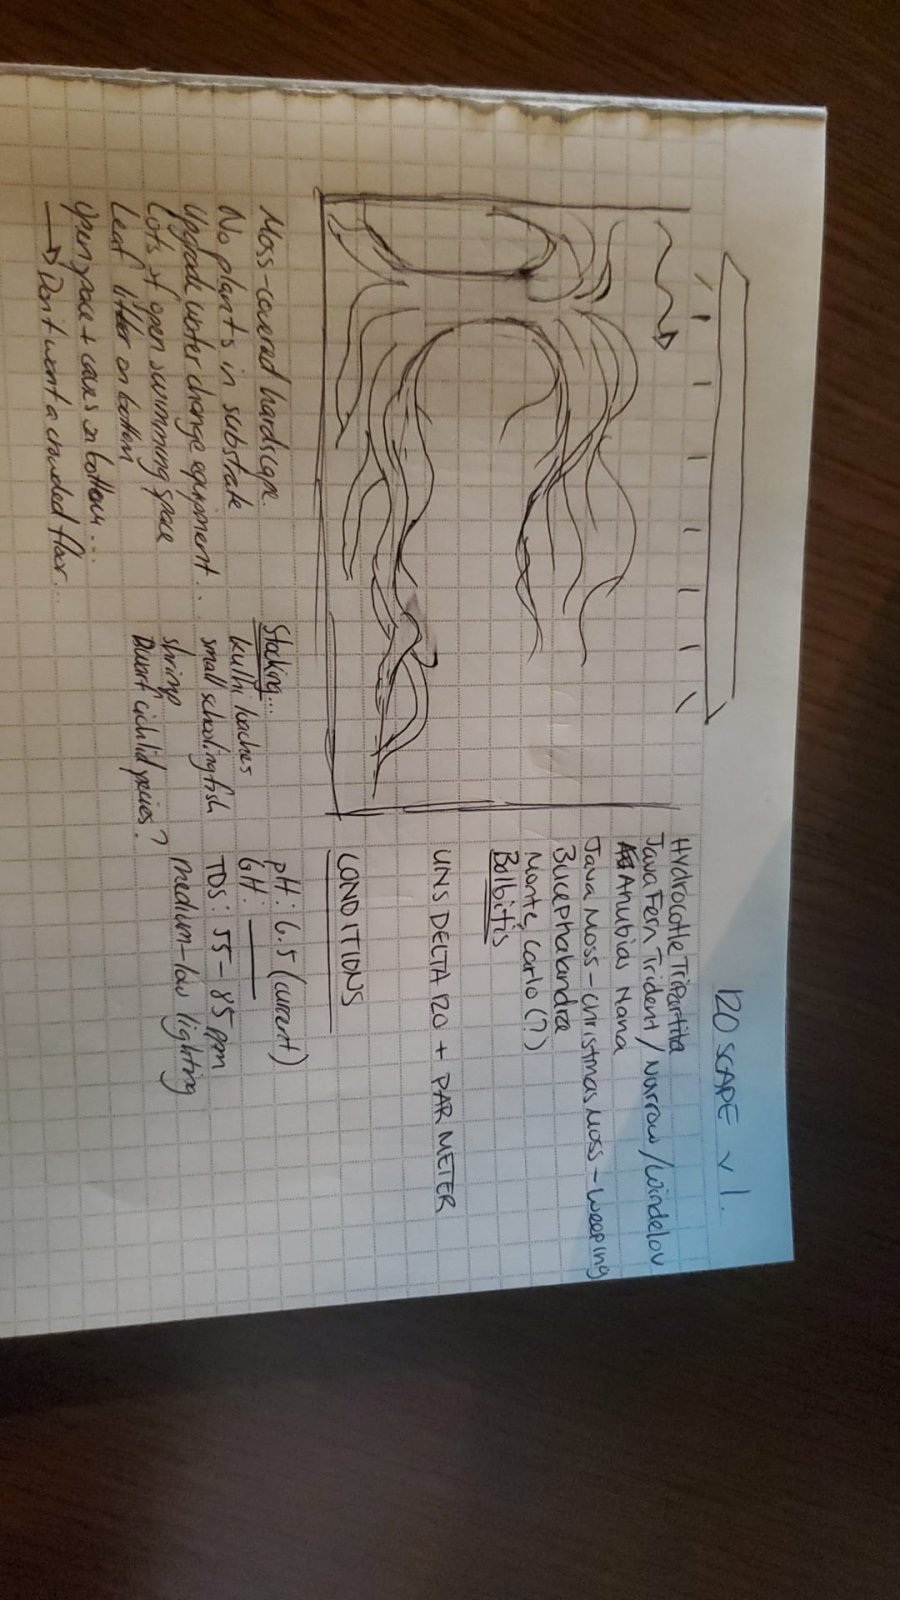 120 SCAPE v1.
Hydrocotle Tripartita
Java Fern Trident / Narrow / Windelov
Anubias Nana
Java Moss - Christmas Moss - Weeping
Bucephalandra
Monte Carlo (?)
Bolbitis
UNS DELTA 120 + PAR METER
CONDITIONS
pH: 6.5 (current)
GH:
TDS: 55-85 ppm
medium-low lighting
Moss-covered hardscape.
No plants in substrate
Upgrade water change equipment...
Lots of open swimming space
Leaf litter on bottom
open space + caves on bottom...
→ Don't want a crowded floor...
Stocking...
kulhi loaches
small schooling fish
shrimp
Dwarf cichlid species?